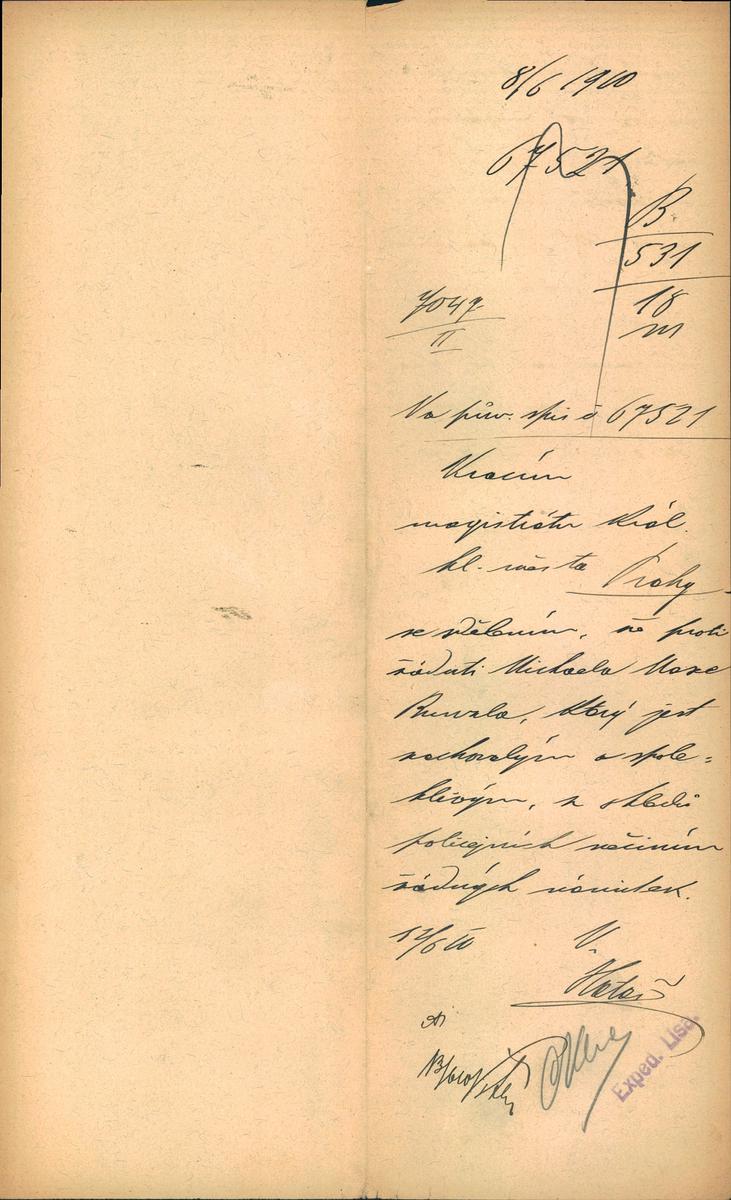 8/6 1910
67521
B
531
18
m
7047
II
Na pův. spis č 67521
Vracím
magistrátu král.
hl. města Prahy
se sdělením, že proti
žádosti Michaela Maxe
, který jest
zachovalým a spole=
hlivým, z ohledů
policejních nečiním
žádných námitek.
17/6 10 V.
Exped. Lisa.